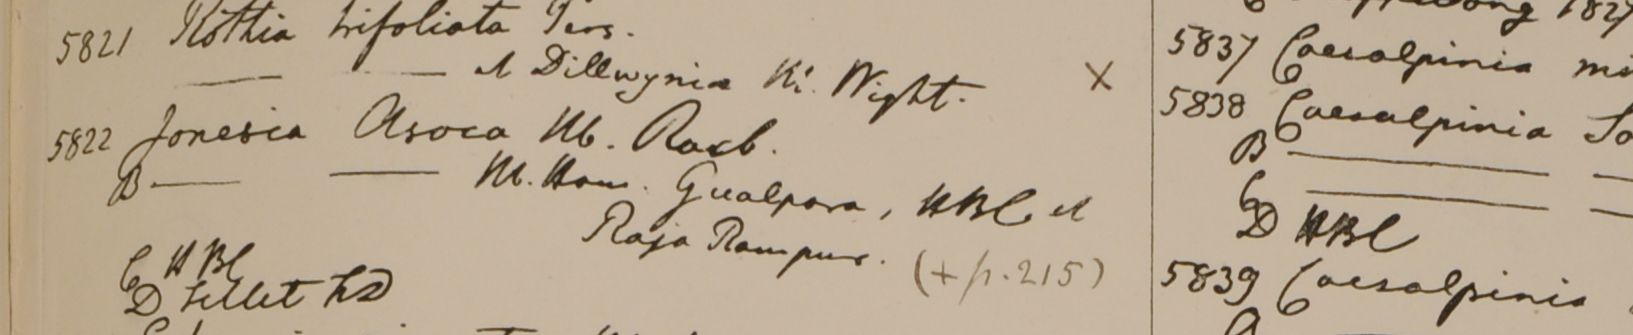 5821 Rothia trifoliata Pers.
— — et Dillwynia Hb. Wight. X
5822 Jonesia Asoca Hb. Roxb.
B — — Hb. Ham. Gualpara, HBC et
Raja Rampur. (+ p. 215)
C HBC
D Sillet FD
1827
5837 Caesalpinia
5838 Caesalpinia
B — —
C — —
D HBC
5839 Caesalpinia